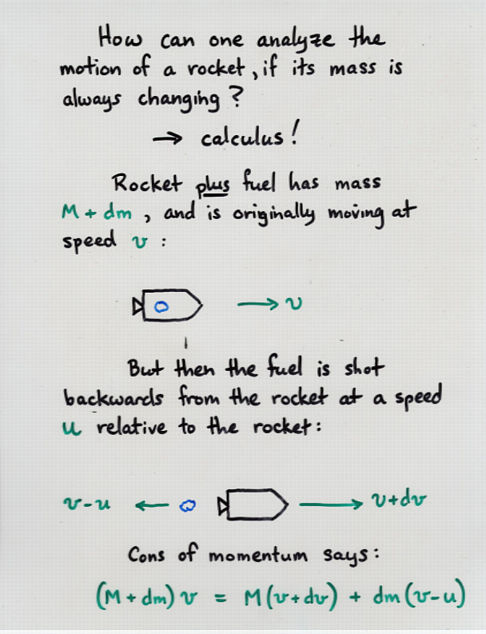 How can one analyze the
motion of a rocket, if its mass is
always changing?
→ calculus!
Rocket plus fuel has mass
M + dm, and is originally moving at
speed v :
→ v
But then the fuel is shot
backwards from the rocket at a speed
u relative to the rocket:
v-u ← → v+dv
Cons of momentum says:
(M+dm) v = M(v+dv) + dm(v-u)